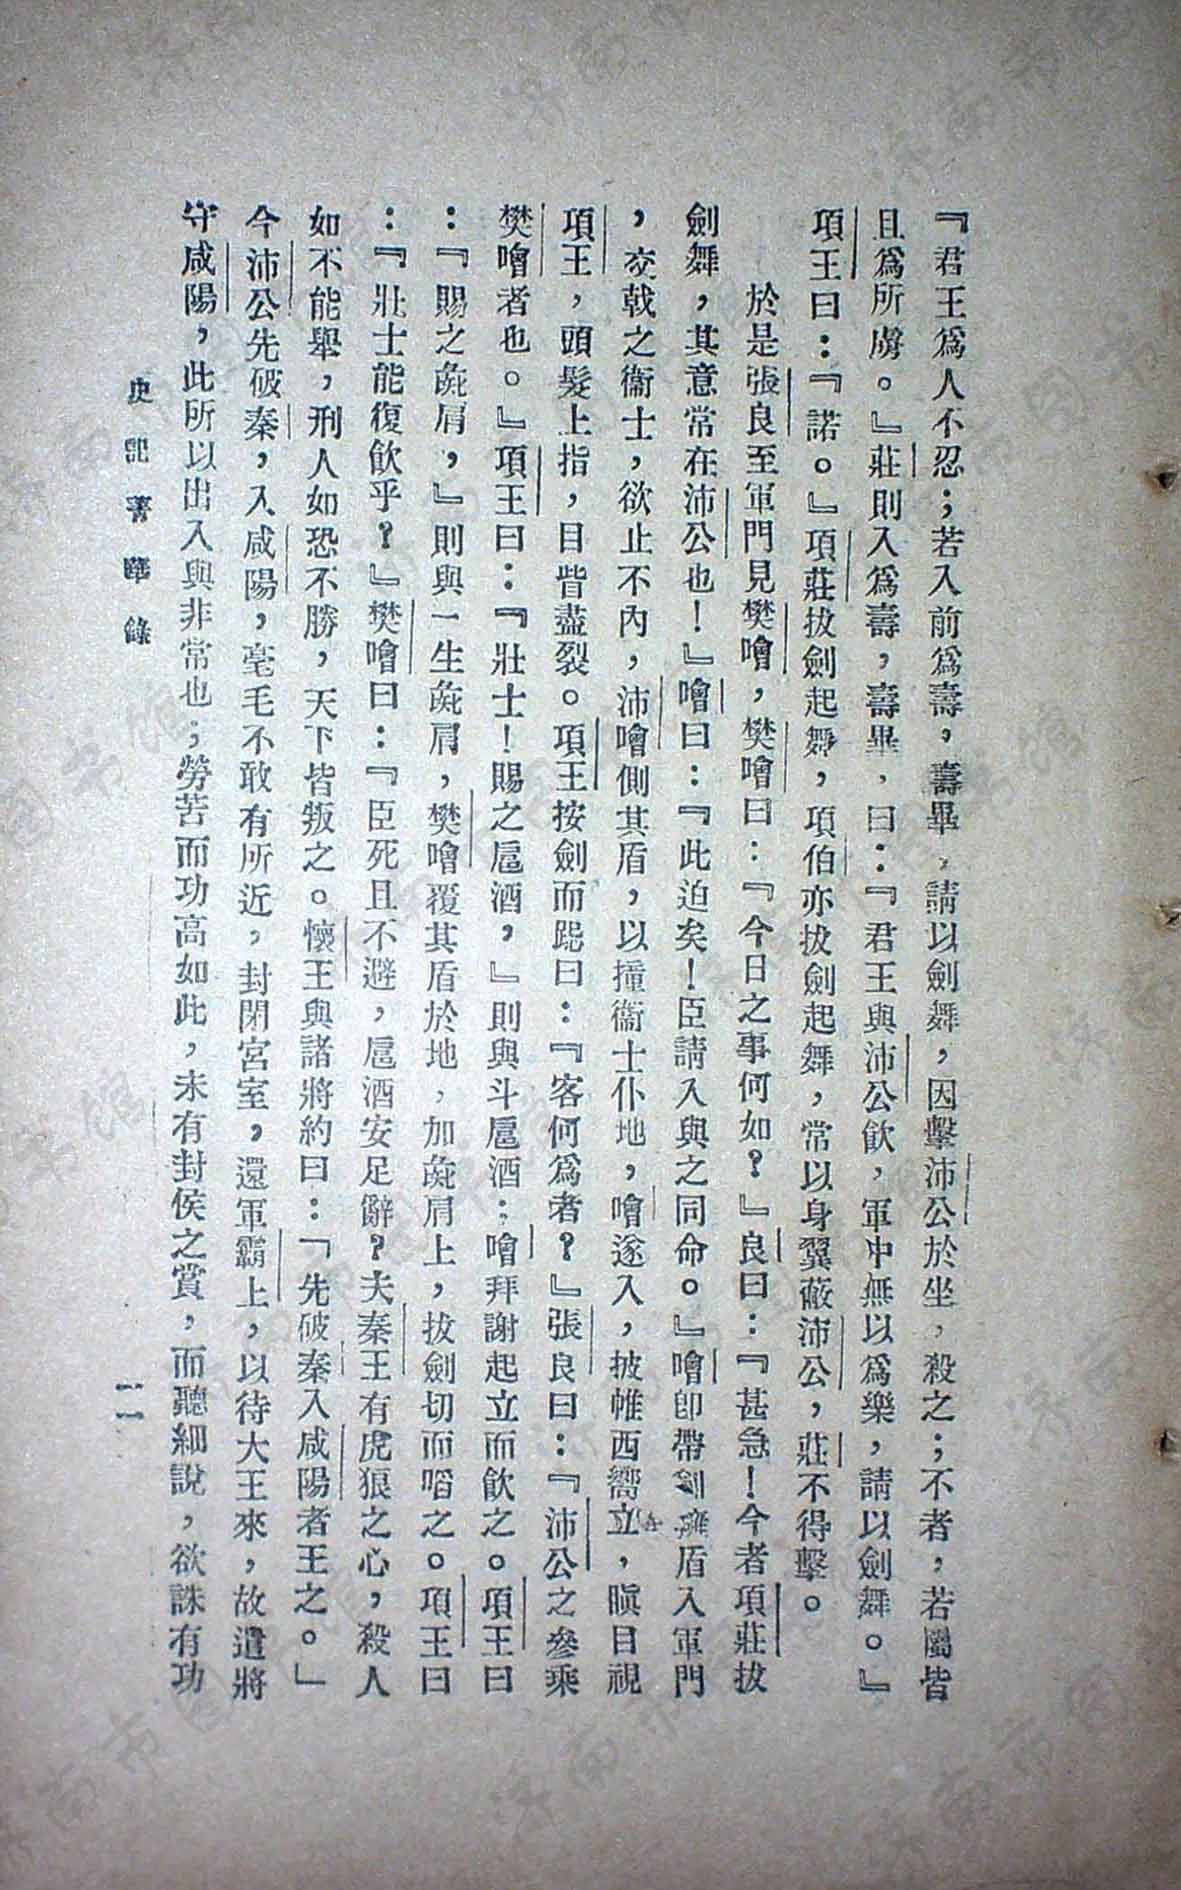 『君王爲人不忍；若入前爲壽，壽畢，請以劍舞，因擊沛公於坐，殺之；不者，若屬皆
且爲所虜。』莊則入爲壽，壽畢，曰：『君王與沛公飮，軍中無以爲樂，請以劍舞。』
項王曰：『諾。』項莊拔劍起舞，項伯亦拔劍起舞，常以身翼蔽沛公，莊不得擊。
於是張良至軍門見樊噲，樊噲曰：『今日之事何如？』良曰：『甚急！今者項莊拔
劍舞，其意常在沛公也！』噲曰：『此迫矣！臣請入與之同命。』噲卽帶劍擁盾入軍門
，交戟之衞士，欲止不內，沛噲側其盾，以撞衞士仆地，噲遂入，披帷西嚮立，瞋目視
項王，頭髮上指，目眥盡裂。項王按劍而跽曰：『客何爲者？』張良曰：『沛公之參乘
樊噲者也。』項王曰：『壯士！賜之巵酒，』則與斗巵酒；噲拜謝起立而飮之。項王曰
：『賜之彘肩，』則與一生彘肩，樊噲覆其盾於地，加彘肩上，拔劍切而啗之。項王曰
：『壯士能復飮乎？』樊噲曰：『臣死且不避，巵酒安足辭？夫秦王有虎狼之心，殺人
如不能舉，刑人如恐不勝，天下皆叛之。懷王與諸將約曰：「先破秦入咸陽者王之。」
今沛公先破秦，入咸陽，毫毛不敢有所近，封閉宮室，還軍霸上，以待大王來，故遣將
守咸陽，此所以出入與非常也；勞苦而功高如此，未有封侯之賞，而聽細說，欲誅有功
史記菁華錄
一一